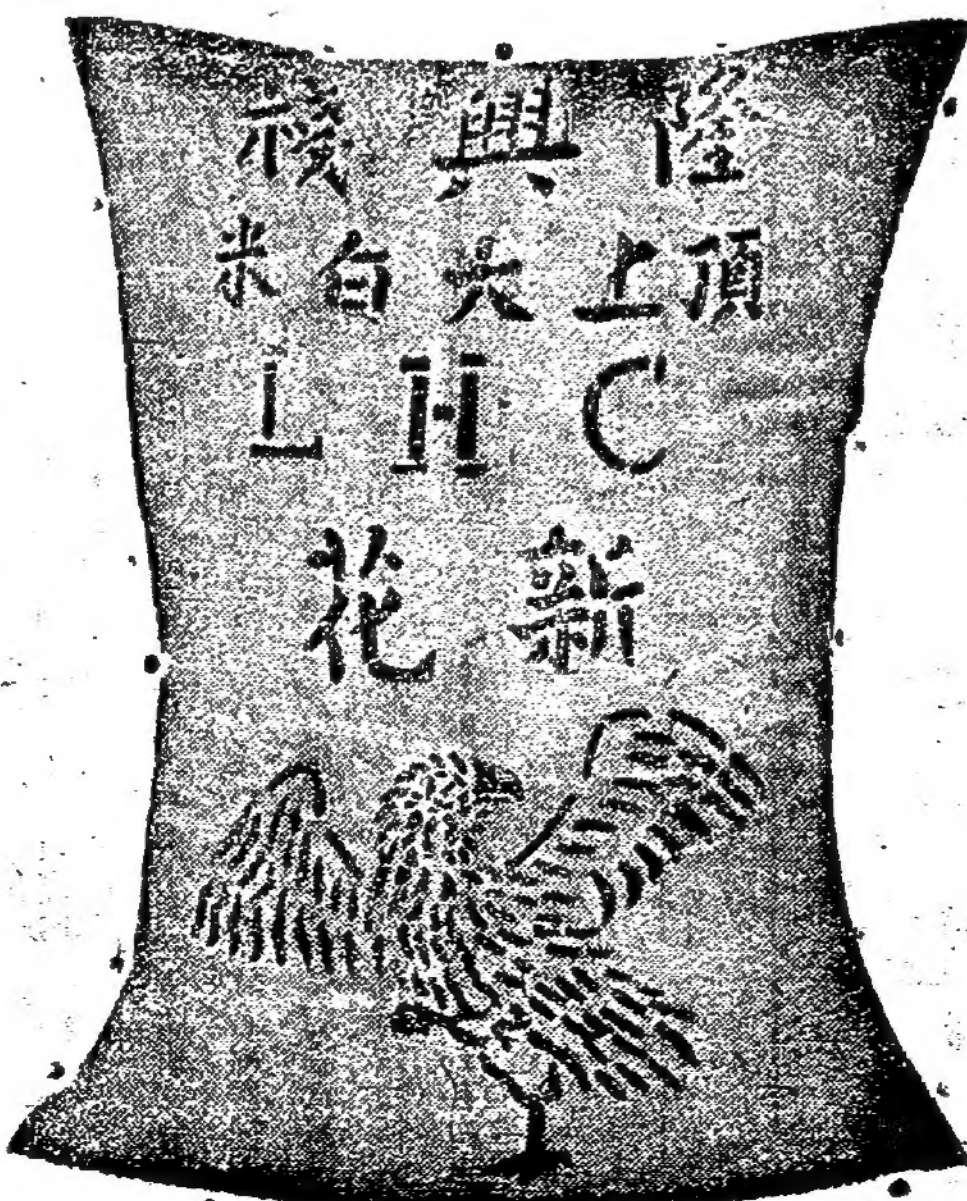 隆興棧
頂上尖白米
L H C
新花